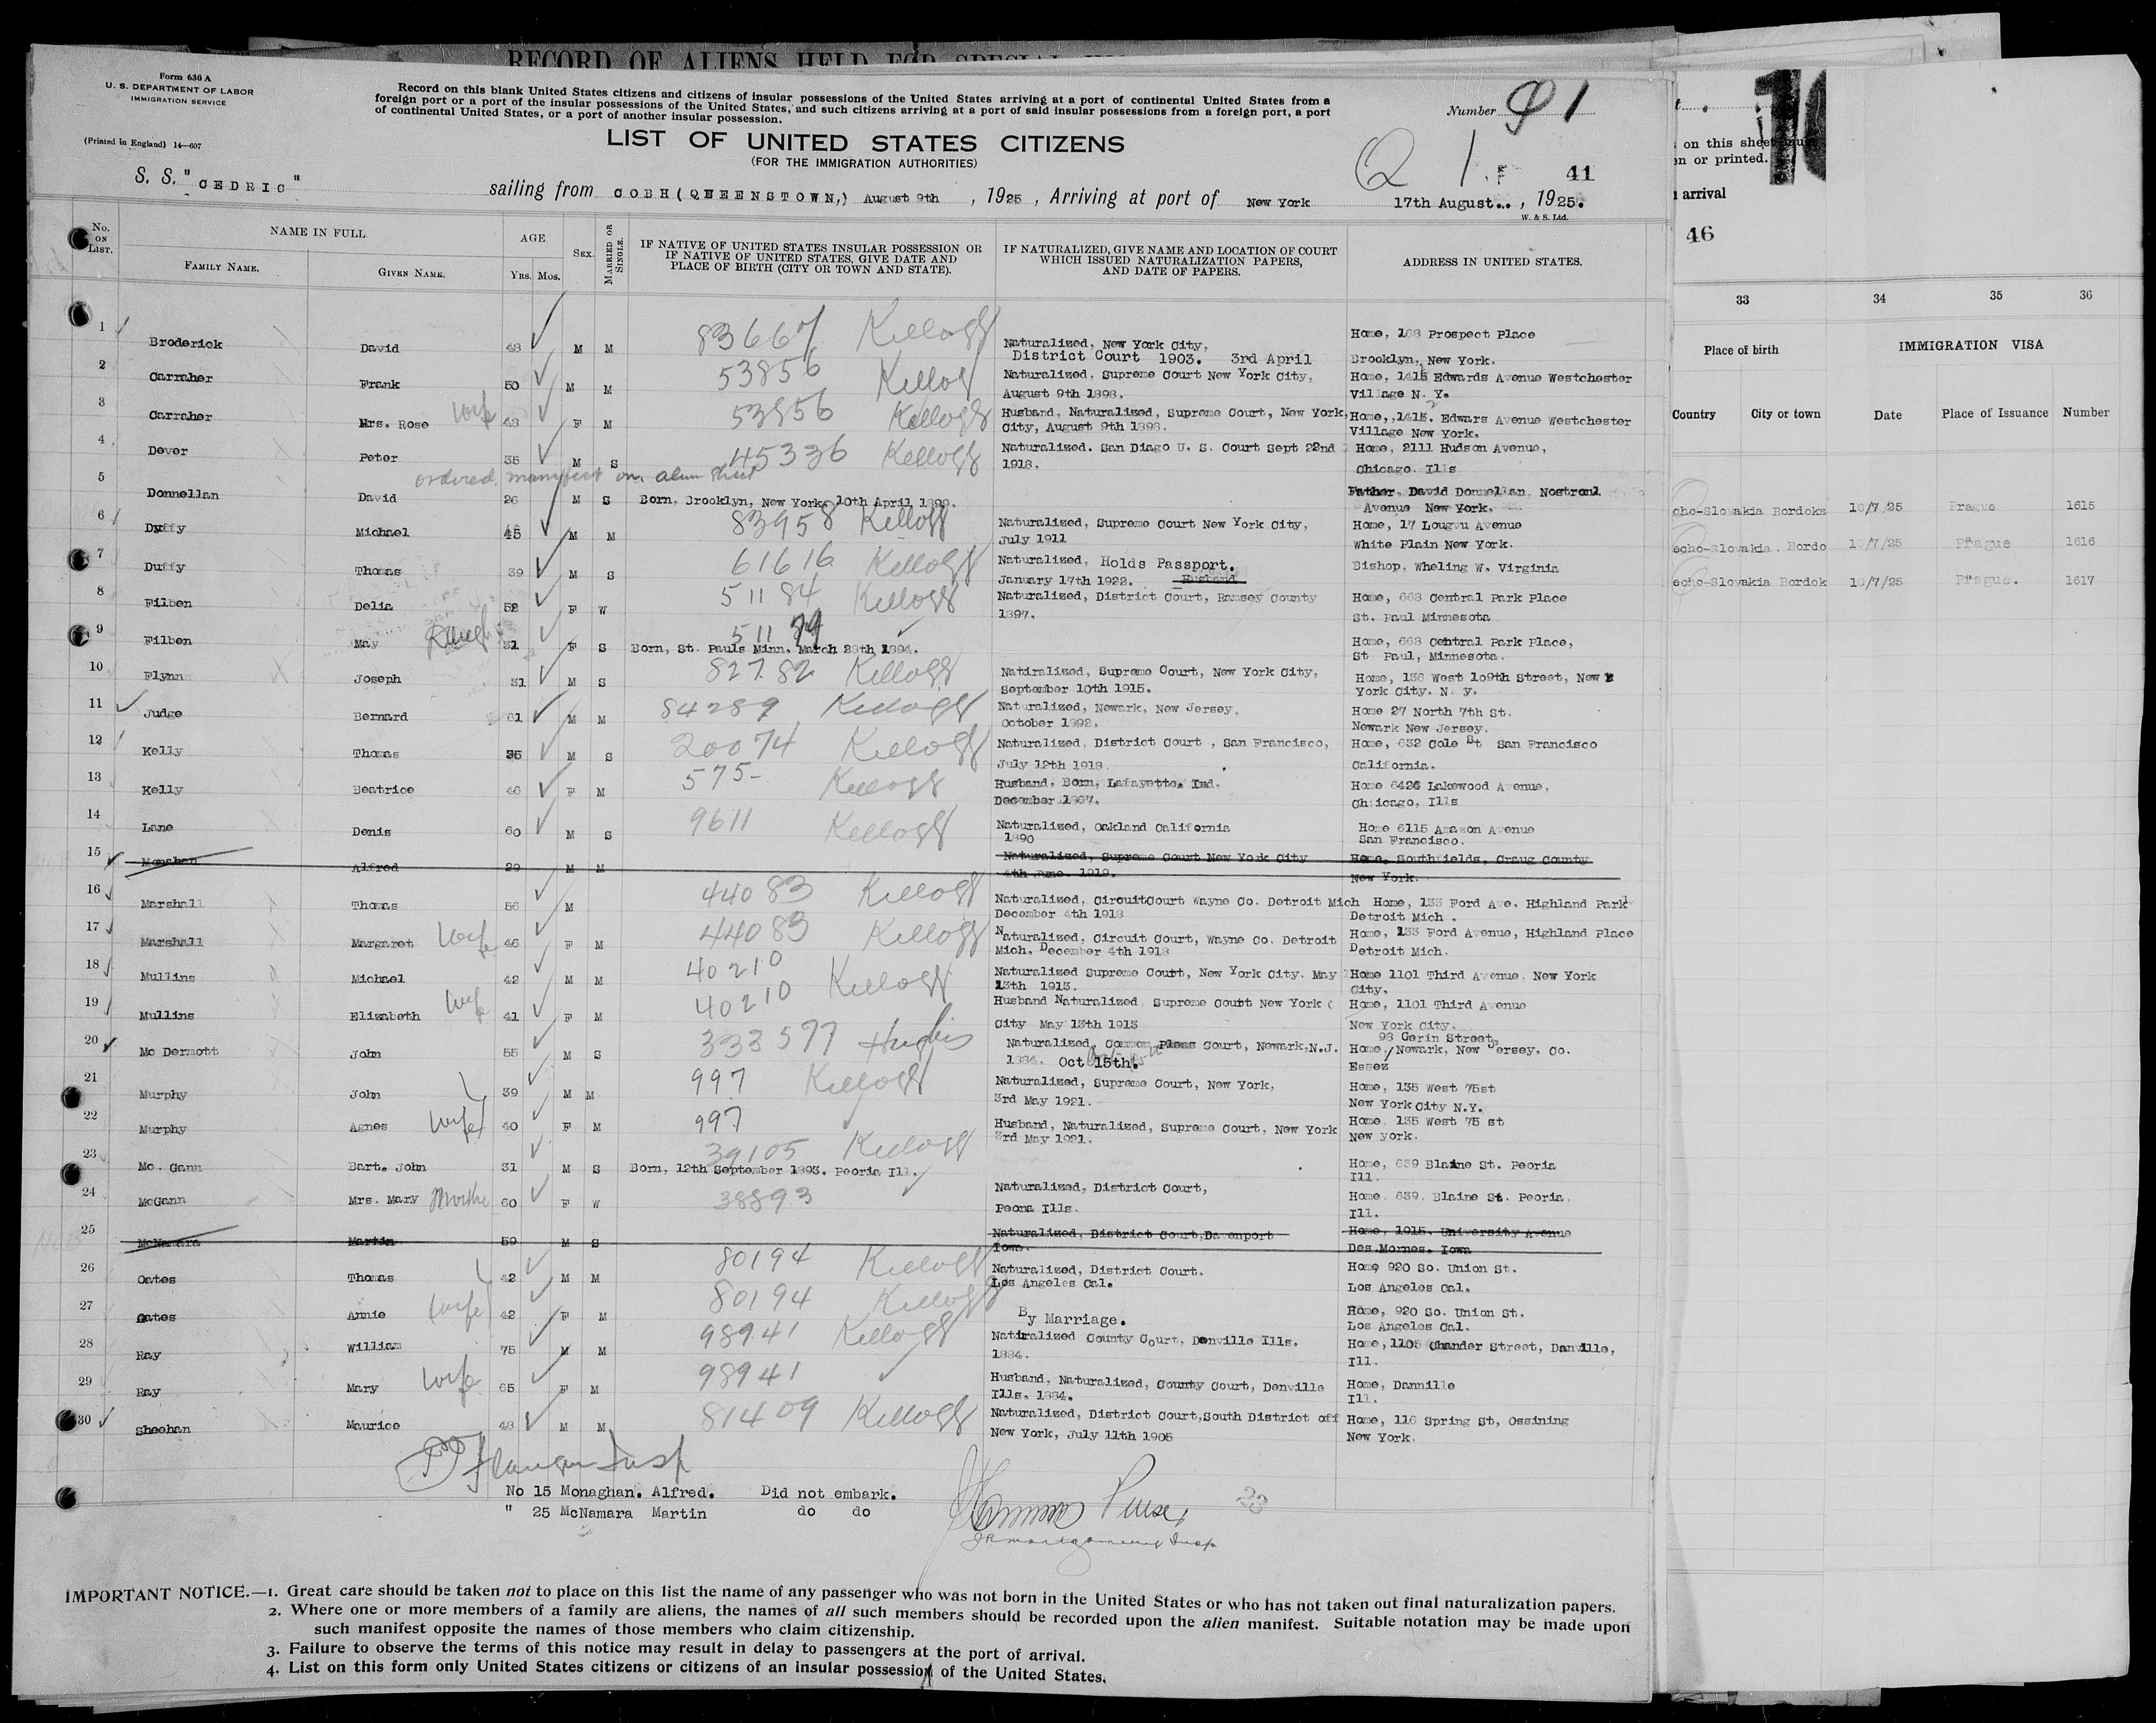 RECORD OF ALIENS HELD FOR SPECIAL
Form 630 A
U. S. DEPARTMENT OF LABOR
IMMIGRATION SERVICE
(Printed in England) 14—607
Record on this blank United States citizens and citizens of insular possessions of the United States arriving at a port of continental United States from a
foreign port or a port of the insular possessions of the United States, and such citizens arriving at a port of said insular possessions from a foreign port, a port
of continental United States, or a port of another insular possession.
Number 91
LIST OF UNITED STATES CITIZENS
(FOR THE IMMIGRATION AUTHORITIES)
41
S. S. "CEDRIC" sailing from COBH (QUEENSTOWN,) August 9th, 1925, Arriving at port of New York 17th August..., 1925.
W. & S. Ltd.
No. ON LIST. NAME IN FULL. FAMILY NAME. GIVEN NAME. AGE. YRS. MOS. SEX. MARRIED OR SINGLE. IF NATIVE OF UNITED STATES INSULAR POSSESSION OR IF NATIVE OF UNITED STATES, GIVE DATE AND PLACE OF BIRTH (CITY OR TOWN AND STATE). IF NATURALIZED, GIVE NAME AND LOCATION OF COURT WHICH ISSUED NATURALIZATION PAPERS, AND DATE OF PAPERS. ADDRESS IN UNITED STATES.
1 Broderick David 48 M M 83667 Kellogg Naturalized, New York City, Home, 168 Prospect Place
District Court 1903. 3rd April Brooklyn, New York.
2 Carraher Frank 50 M M 53856 Kellogg Naturalized, Supreme Court New York City, Home, 1415 Edwards Avenue Westchester
August 9th 1898. Village N. Y.
3 Carraher Mrs. Rose wife 48 F M 53856 Kellogg Husband, Naturalized, Supreme Court, New York, Home,,1415. Edwars Avenue Westchester
City, August 9th 1898. Village New York.
4 Dever Peter 35 M S 45336 Kellogg Naturalized. San Diago U. S. Court Sept 22nd Home, 2111 Hudson Avenue,
1918. Chicago. Ills
ordered manifest on alien sheet
5 Donnellan David 26 M S Born, Brooklyn, New York, 10th April, 1899. Father, David Donnellan, Nostronl
Avenue New York.
6 Duffy Michael 45 M M 83958 Kellogg Naturalized, Supreme Court New York City, Home, 17 Lougvu Avenue
July 1911 White Plain New York.
7 Duffy Thomas 39 M S 61616 Kellogg Naturalized, Holds Passport. Bishop, Wheling W. Virginia
January 17th 1922. Husband
8 Filben Delia 52 F W 51184 Kellogg Naturalized, District Court, Ramsey County Home, 668 Central Park Place
1897. St. Paul Minnesota
9 Filben May 31 F S 51184 Born, St. Pauls Minn. March 28th 1894. Home, 668 Central Park Place,
St Paul, Minnesota.
10 Flynn Joseph 31 M S 82782 Kellogg Natiralized, Supreme Court, New York City, Home, 136 West 109th Street, New
September 10th 1915. York City. N. y.
11 Judge Bernard 61 M M 84289 Kellogg Naturalized, Newark, New Jersey. Home 27 North 7th St.
October 1892. Newark New Jersey.
12 Kelly Thomas 35 M S 20074 Kellogg Naturalized, District Court , San Francisco, Home, 632 Cole St San Francisco
July 12th 1918. California.
13 Kelly Beatrice 46 F M 575- Kellogg Husband, Born, Lafayette. Ind. Home 6426 Lakewood Avenue,
December 1867. Chicago, Ills
14 Lane Denis 60 M S 9611 Kellogg Naturalized, Oakland California Home 6115 Amazon Avenue
1890 San Francisco.
15 Monahan Alfred 29 M M Naturalized, Supreme Court New York City Home, Southfields, Craug County
4th June. 1919. New York.
16 Marshall Thomas 56 M 44083 Kellogg Naturalized, CircuitCourt Wayne Co. Detroit Mich Home, 133 Ford Ave. Highland Park
December 4th 1918 Detroit Mich .
17 Marshall Margaret wife 46 F M 44083 Kellogg Naturalized, Circuit Court, Wayne Co. Detroit Home, 133 Ford Avenue, Highland Place
Mich. December 4th 1918 Detroit Mich.
18 Mullins Michael 42 M M 40210 Kellogg Naturalized Supreme Court, New York City. May Home 1101 Third Avenue, New York
13th 1913. City.
19 Mullins Elizabeth wife 41 F M 40210 Husband Naturalized Supreme Court New York Home, 1101 Third Avenue
City May 13th 1913 New York City.
20 Mc Dermott John 55 M S 333577 Hughes Naturalized, Common Pleas Court, Newark, N.J. 98 Gerin Street,
1884. Oct 15th. Home, Newark, New Jersey. Co.
Essez
21 Murphy John 39 M M 997 Kellogg Naturalized, Supreme Court, New York, Home, 135 West 75st
3rd May 1921. New York City N.Y.
22 Murphy Agnes wife 40 F M 997 Husband, Naturalized, Supreme Court, New York Home, 135 West 75 st
3rd May 1921. New york.
23 Mc. Gann Bart. John 31 M S 39105 Kellogg Born, 12th September 1893. Peoria Ill. Home, 639 Blaine St. Peoria
Ill.
24 McGann Mrs. Mary Mother 60 F W 38893 Naturalized, District Court, Home, 639, Blaine St. Peoria,
Peona Ills. Ill.
25 McNamara Martin 59 M S Naturalized, District Court,Davenport Home, 1915. University Avenue
Iowa. Des.Mornes. Iowa
26 Oates Thomas 42 M M 80194 Kellogg Naturalized, District Court. Home 920 So. Union St.
Los Angeles Cal. Los Angeles Cal.
27 Oates Annie wife 42 F M 80194 Kellogg By Marriage. Home, 920 So. Union St.
Los Angeles Cal.
28 Ray William 75 M M 98941 Kellogg Natiralized County Court, Denville Ills. Home, 1105 Chander Street, Danville,
1884. Ill.
29 Ray Mary wife 65 F M 98941 Husband, Naturalized, County Court, Denville Home, Dannille
Ills. 1884. Ill.
30 Sheehan Maurice 48 M M 81409 Kellogg Naturalized, District Court,South District off Home, 116 Spring St, Ossining
New York, July 11th 1905 New York.
No 15 Monaghan. Alfred. Did not embark.
" 25 McNamara Martin do do
Purser
IMPORTANT NOTICE.—1. Great care should be taken not to place on this list the name of any passenger who was not born in the United States or who has not taken out final naturalization papers.
2. Where one or more members of a family are aliens, the names of all such members should be recorded upon the alien manifest. Suitable notation may be made upon
such manifest opposite the names of those members who claim citizenship.
3. Failure to observe the terms of this notice may result in delay to passengers at the port of arrival.
4. List on this form only United States citizens or citizens of an insular possession of the United States.
on this sheet
en or printed.
arrival
46
33 34 35 36
Place of birth IMMIGRATION VISA
Country City or town Date Place of Issuance Number
cho-Slovakia Bordoks 10/7/25 Prague 1615
echo-Slovakia. Bordo 10/7/25 Prague 1616
echo-Slovakia Bordok 10/7/25 Prague. 1617